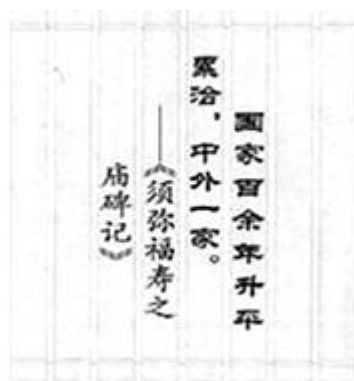 国家百余年升平
累洽，中外一家。
——《须弥福寿之
庙碑记》